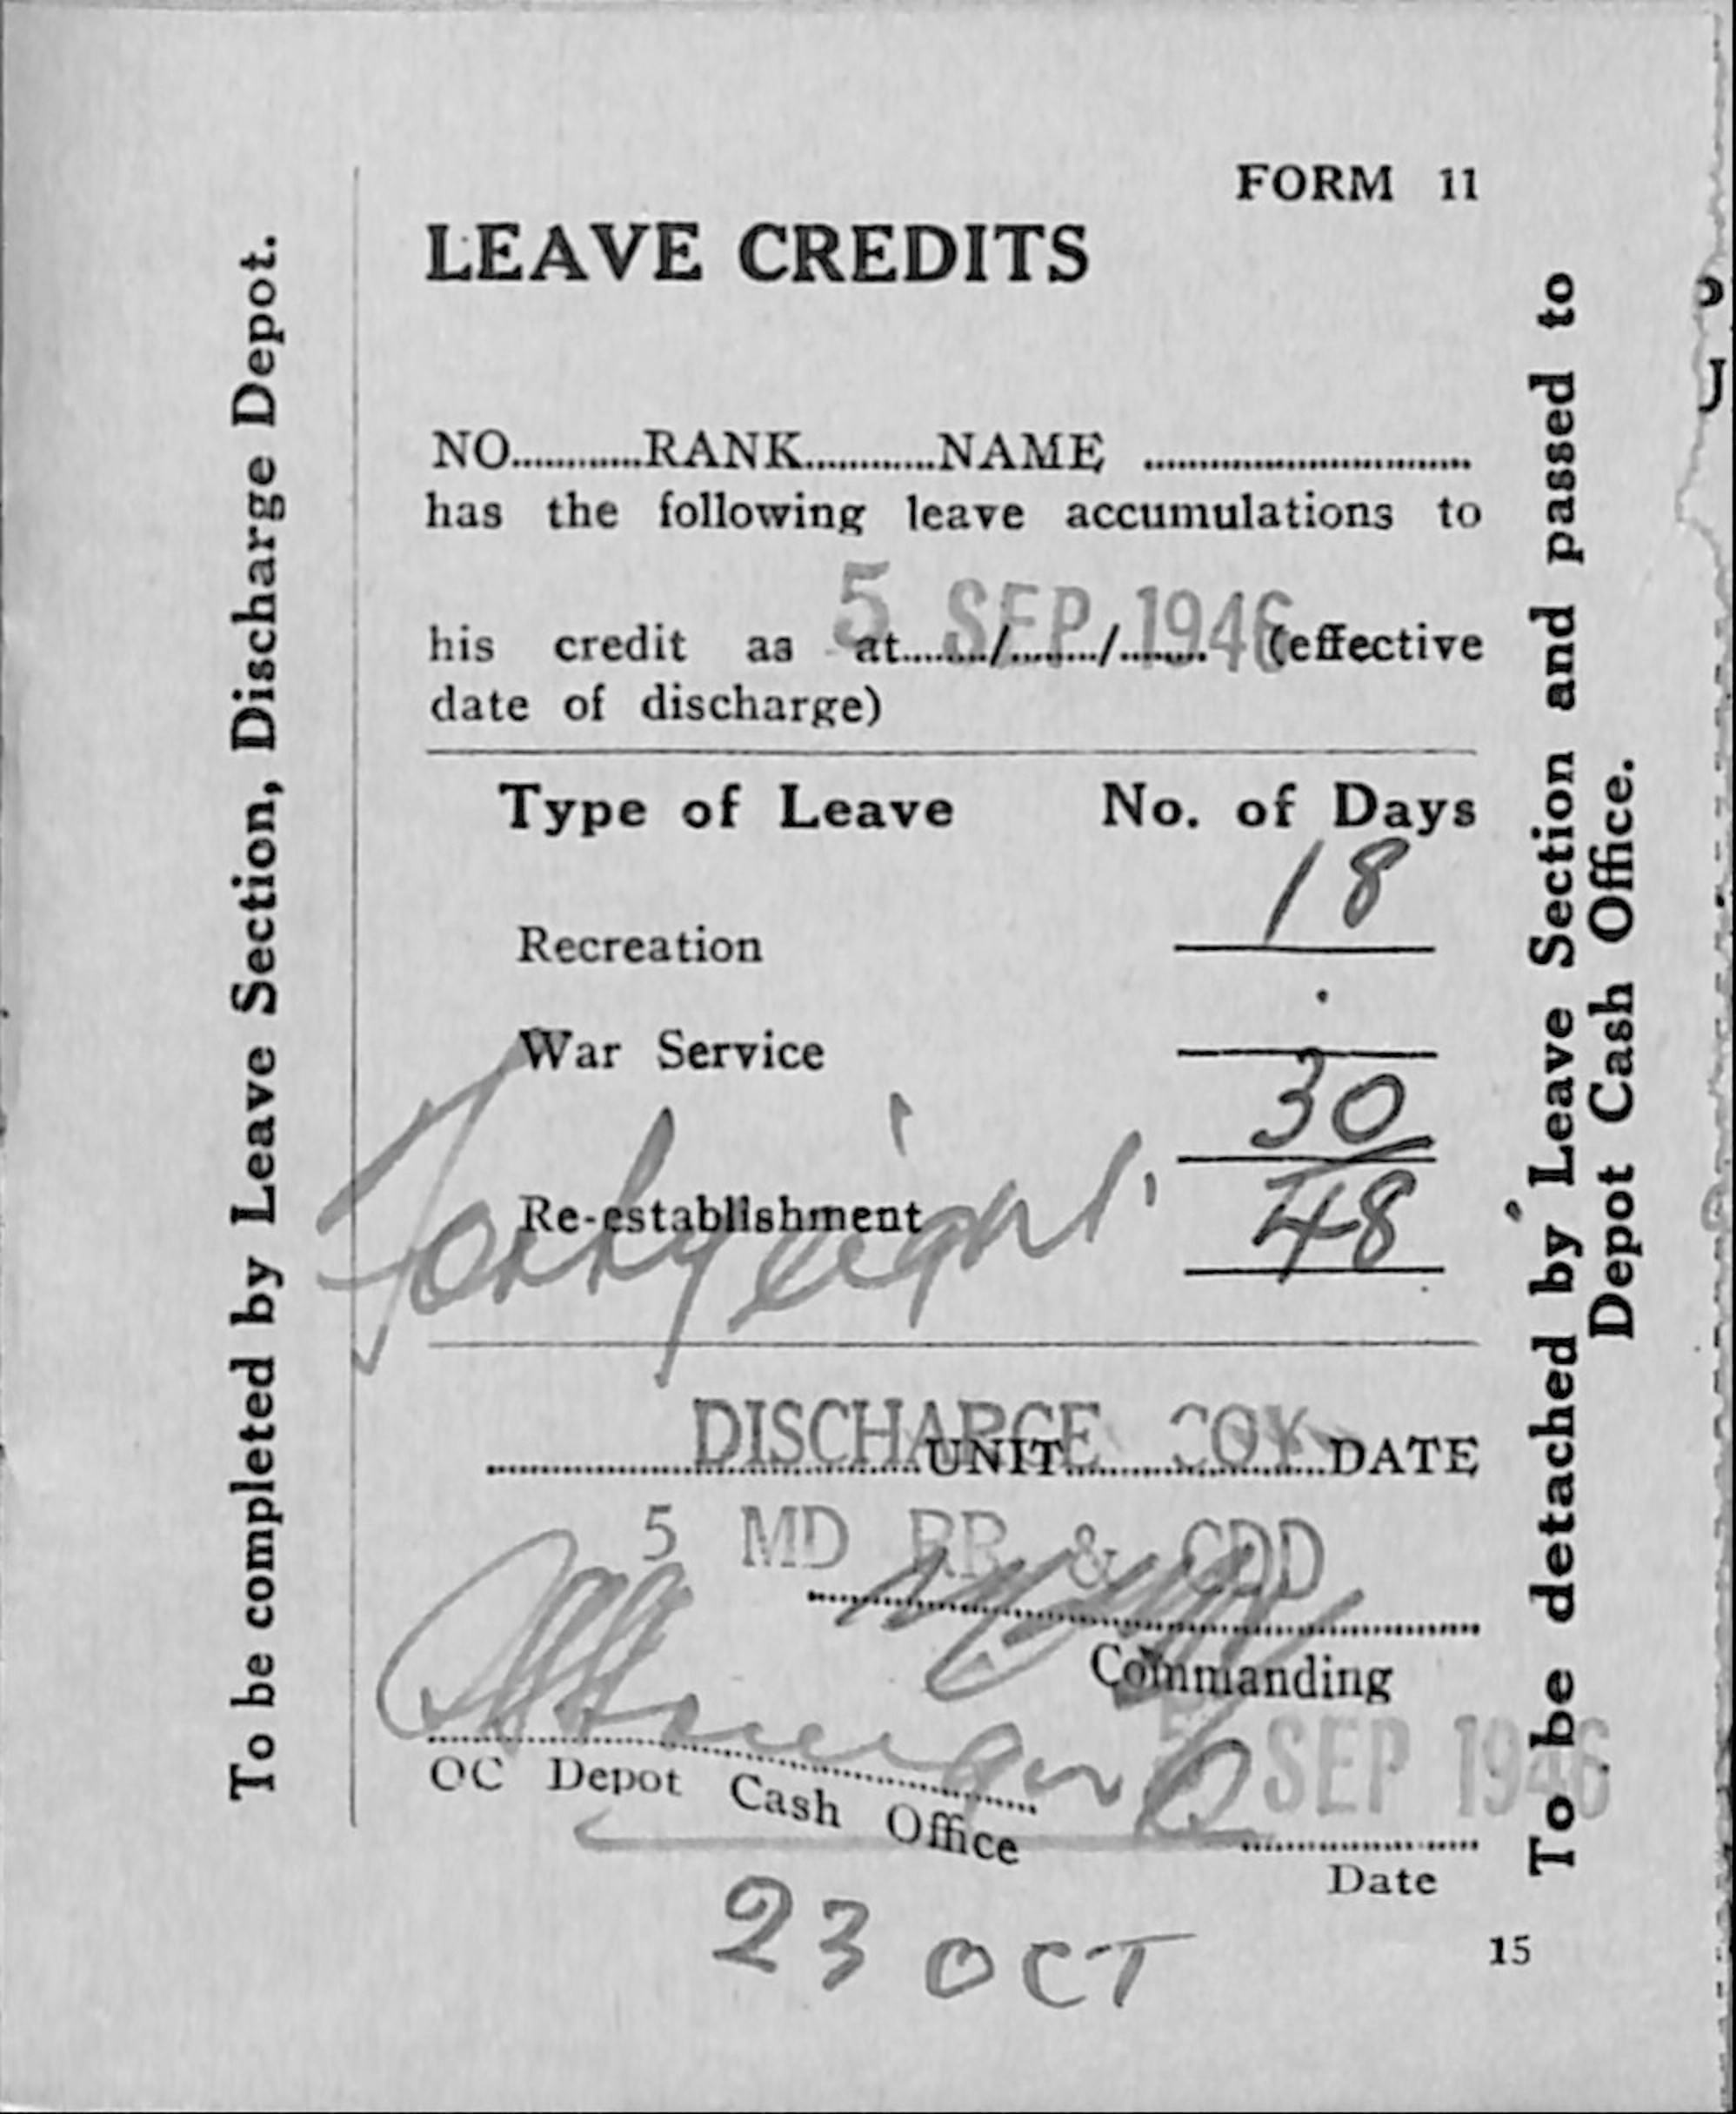 FORM 11
LEAVE CREDITS
NO............RANK............NAME ..............................
has the following leave accumulations to
5 SEP 1946
his credit as at......../......../........ (effective
date of discharge)
Type of Leave No. of Days
18
Recreation
War Service
30
Re-establishment
48
Forty eight
DISCHARGE COY
..............................UNIT....................DATE
5 MD RR & CDD
Commanding
SEP 1946
OC Depot Cash Office
Date
23 OCT
15
To be completed by Leave Section, Discharge Depot.
To be detached by Leave Section and passed to
Depot Cash Office.